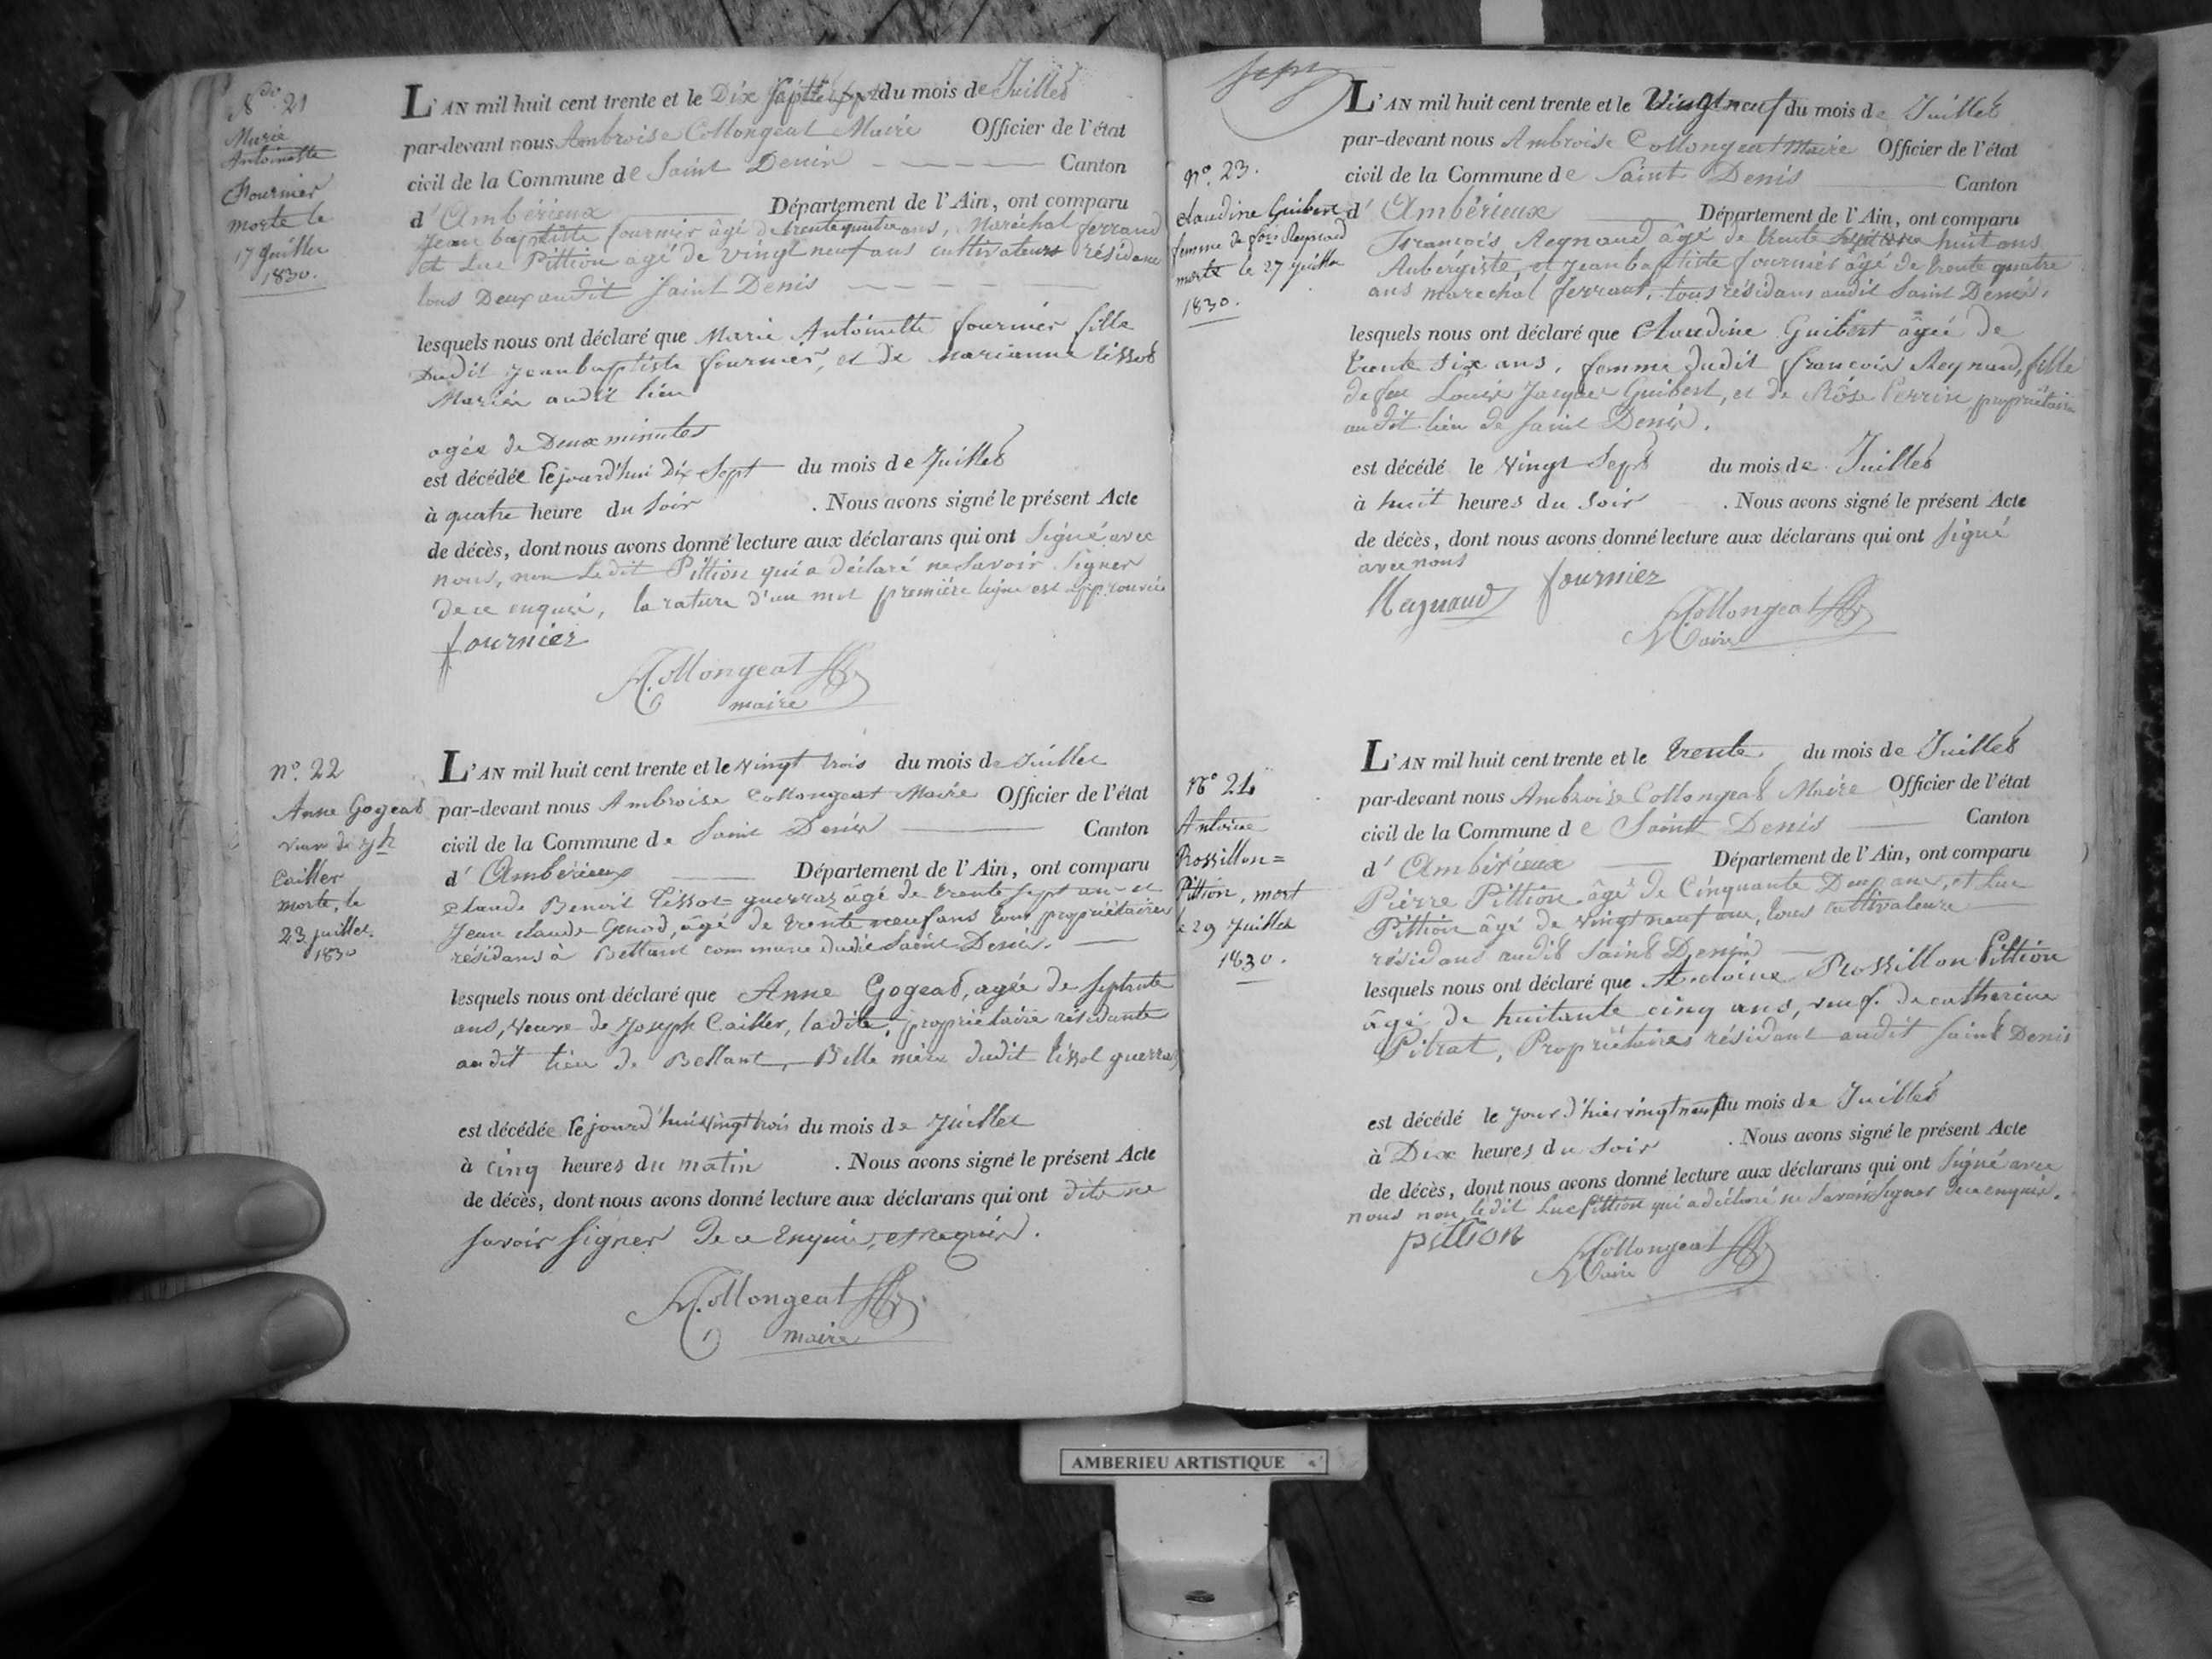 N° 21
Marie
Antoinette
Fournier
morte le
17 Juillet
1830.
L'AN mil huit cent trente et le Dix Sept du mois de Juillet
par-devant nous Ambroise Collongeat Maire Officier de l'état
civil de la Commune de Saint Denis Canton
d'Ambérieux Département de l'Ain, ont comparu
Jean baptiste fournier âgé de trente quatre ans, Maréchal ferrand
et Luc Pittion agé de vingt neuf ans cultivateurs résidans
tous Deux audit Saint Denis
lesquels nous ont déclaré que Marie Antoinette fournier fille
Dudit Jean baptiste fournier, et de Marianne tissot
Mariés audit lieu
agée de Deux minutes
est décédée le jourd'hui Dix Sept du mois de Juillet
à quatre heure du soir . Nous avons signé le présent Acte
de décès, dont nous avons donné lecture aux déclarans qui ont Signé avec
nous, non Ledit Pittion qui a déclaré ne Savoir Signer
de ce enquis, la rature d'un mot première ligne est approuvée
fournier
A. Collongeat
maire
n° 22
Anne Gogeat
veuve de Jph
Cailler
morte, le
23 juillet.
1830
L'AN mil huit cent trente et le vingt trois du mois de Juillet
par-devant nous Ambroise Collongeat Maire Officier de l'état
civil de la Commune de Saint Denis Canton
d'Ambérieux Département de l'Ain, ont comparu
Claude Benoit Tissot=guerraz âgé de trente sept ans et
Jean claude Genod, âgé de trente neuf ans tous propriétaires
résidans à Bettant commune dudit Saint Denis.
lesquels nous ont déclaré que Anne Gogeat, agée de septante
ans, Veuve de Joseph Cailler, ladite, propriétaire résidante
audit lieu de Bettant, Belle mère dudit tissot guerraz
est décédée le jourd'hui vingt trois du mois de Juillet
à cinq heures du matin . Nous avons signé le présent Acte
de décès, dont nous avons donné lecture aux déclarans qui ont dit ne
savoir signer De ce Enquis, et requis.
A. Collongeat
maire
n°. 23.
Claudine Guibert
femme de fois Reynaud
morte le 27 Juillet
1830.
L'AN mil huit cent trente et le Vingt neuf du mois de Juillet
par-devant nous Ambroise Collongeat Maire Officier de l'état
civil de la Commune de Saint Denis Canton
d'Ambérieux Département de l'Ain, ont comparu
François Reynaud âgé de trente huit ans
Aubergiste, et Jean baptiste fournier âgé de trente quatre
ans maréchal ferrant, tous résidans audit Saint Denis.
lesquels nous ont déclaré que Claudine Guibert âgée de
trente six ans, femme dudit françois Reynaud, fille
de feu Louis Jacques Guibert, et de Rôse Perrin propriétaire
audit lieu de saint Denis.
est décédé le vingt Sept du mois de Juillet
à huit heures du Soir . Nous avons signé le présent Acte
de décès, dont nous avons donné lecture aux déclarans qui ont signé
avec nous
Reynaud fournier
A. Collongeat
Maire
N° 24
Antoine
Rossillon=
Pittion, mort
le 29 Juillet
1830.
L'AN mil huit cent trente et le trente du mois de Juillet
par-devant nous Ambroise Collongeat Maire Officier de l'état
civil de la Commune de Saint Denis Canton
d'Ambérieux Département de l'Ain, ont comparu
Pierre Pittion âgé de Cinquante Deux ans, et Luc
Pittion âgé de vingt neuf ans, tous cultivateurs
résidans audit Saint Denis
lesquels nous ont déclaré que Antoine Rossillon Pittion
âgé de huitante cinq ans, veuf de catherine
Pitrat, Propriétaires résidant audit Saint Denis
est décédé le jour d'hier vingt neuf du mois de Juillet
à Dix heures du Soir . Nous avons signé le présent Acte
de décès, dont nous avons donné lecture aux déclarans qui ont Signé avec
nous non ledit Luc Pittion qui a déclaré ne Savoir Signer de ce enquis.
pittion
A. Collongeat
Maire
AMBERIEU ARTISTIQUE